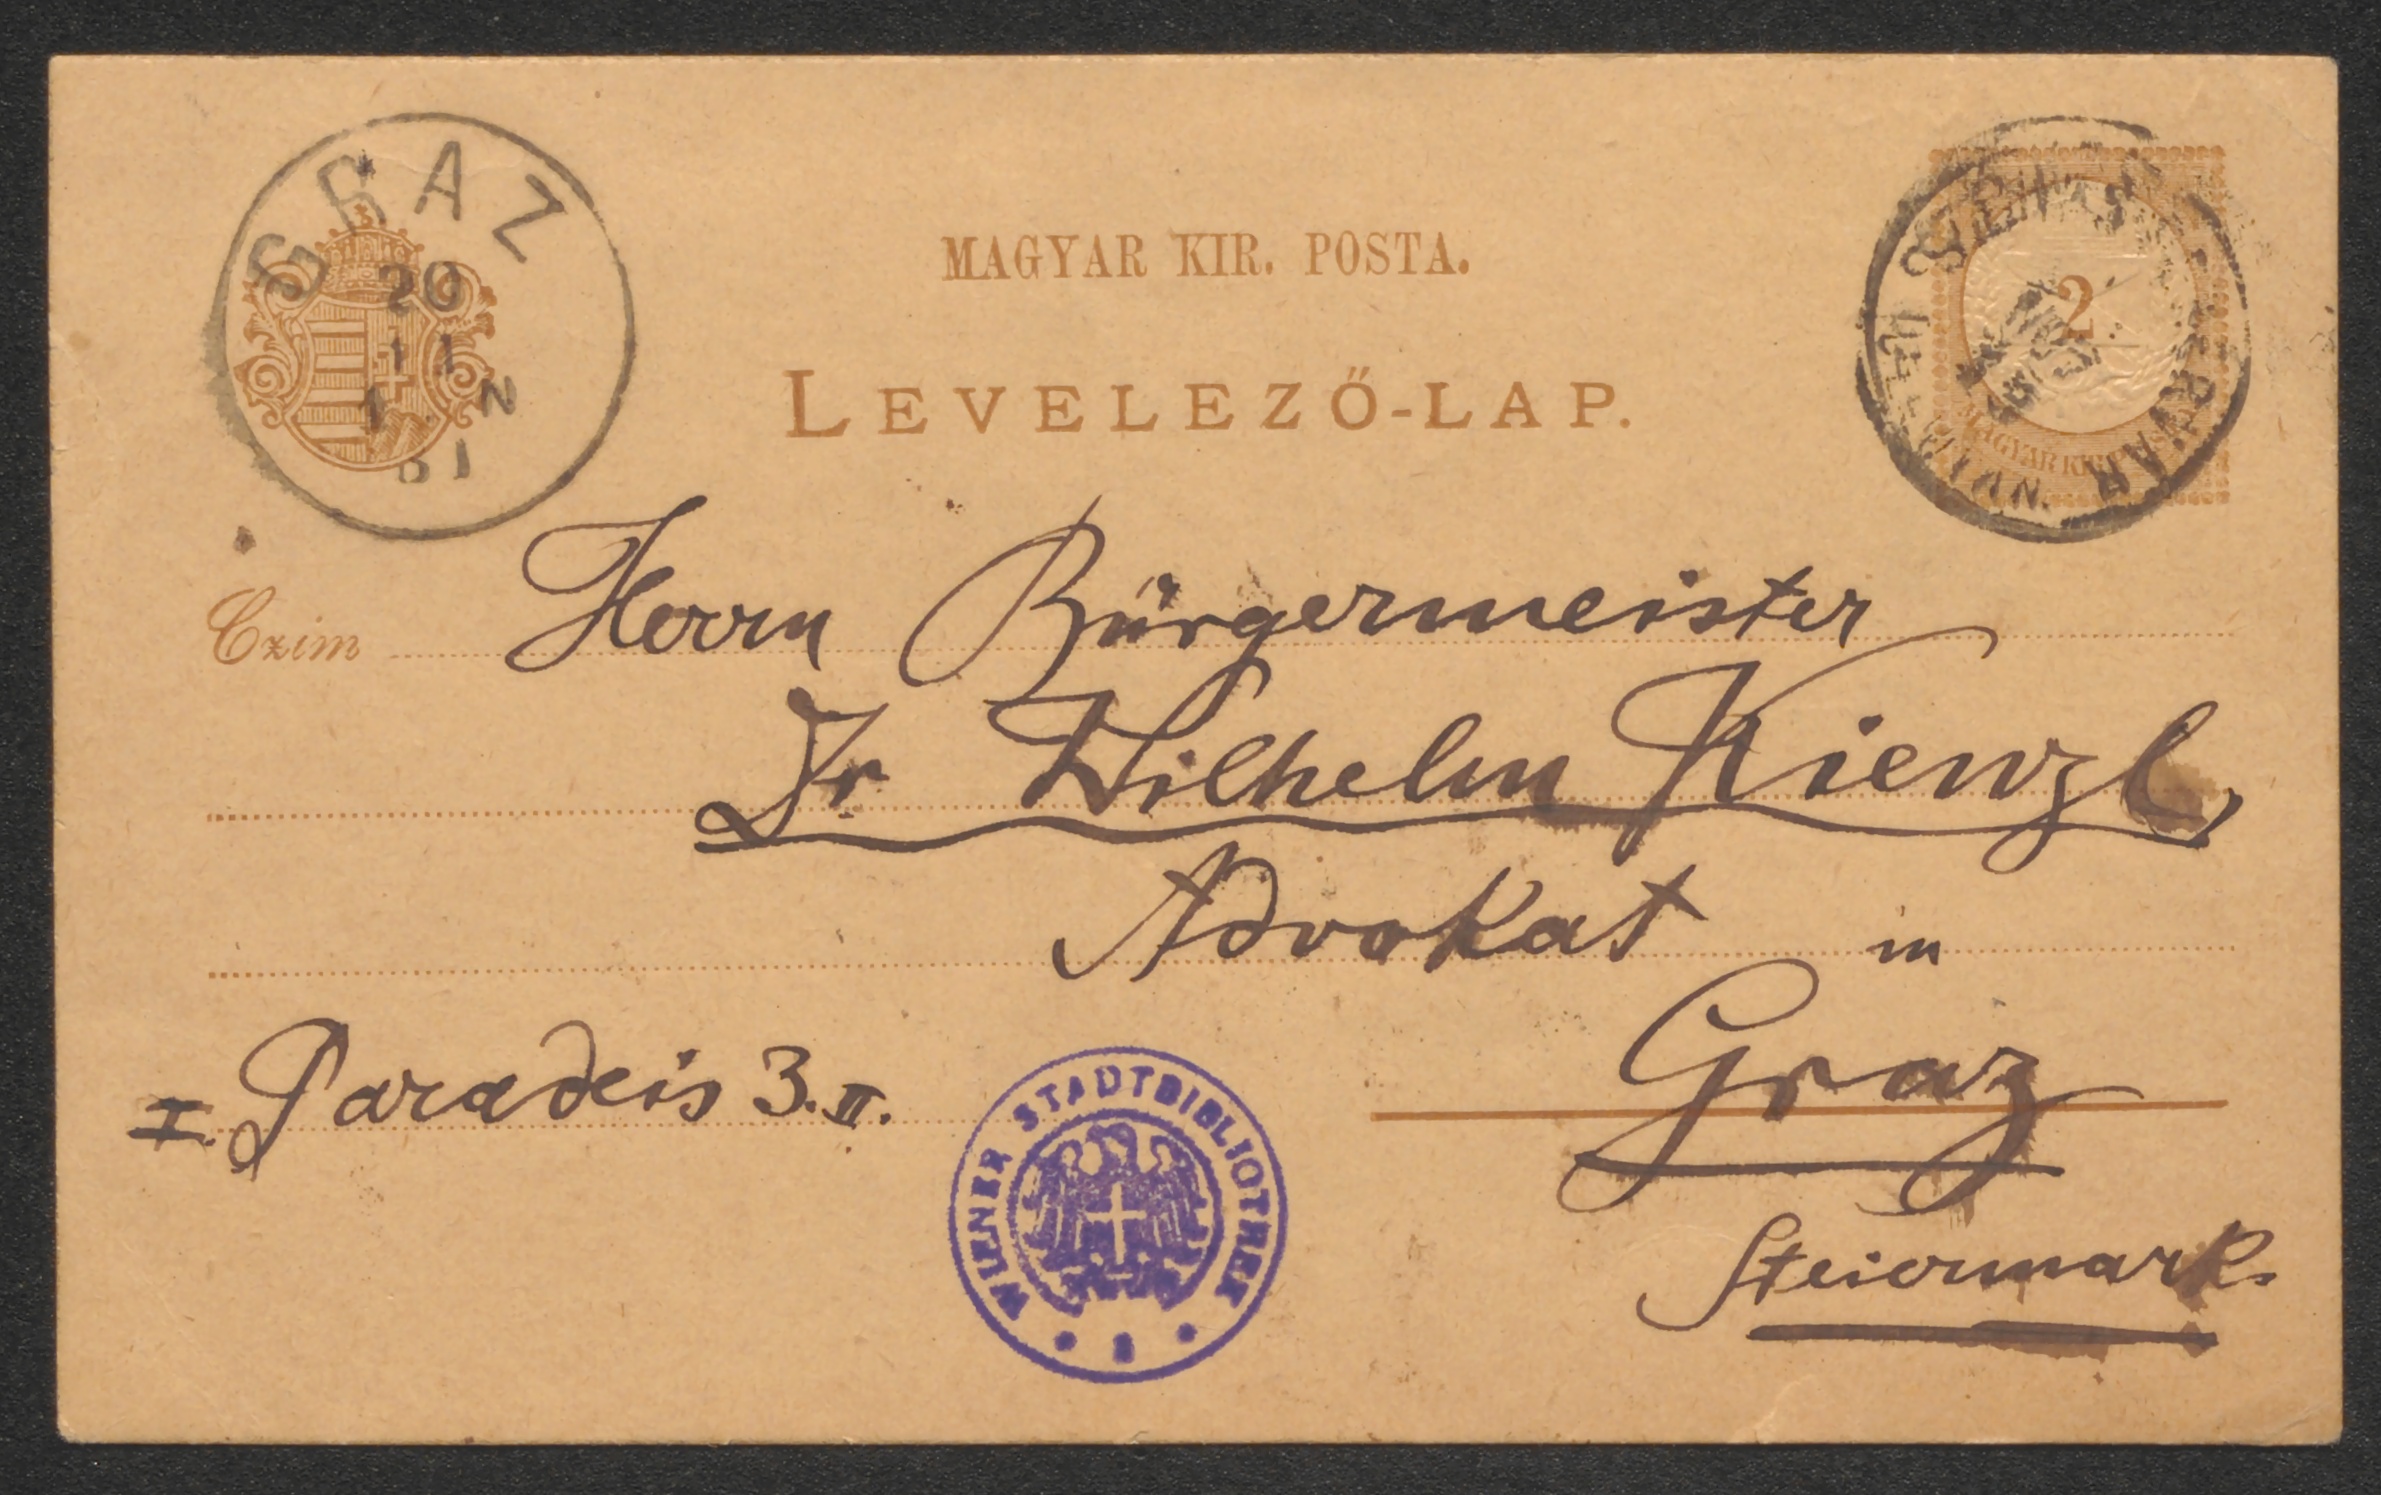 GRAZ
20
11
1. N
81
MAGYAR KIR. POSTA.
LEVELEZŐ-LAP.
2
MAGYAR KIR.
Czim
Herrn Bürgermeister
Dr Wilhelm Kienzl,
Advokat in
I. Paradeis 3. II.
Graz
Steiermark.
WIENER STADTBIBLIOTHEK